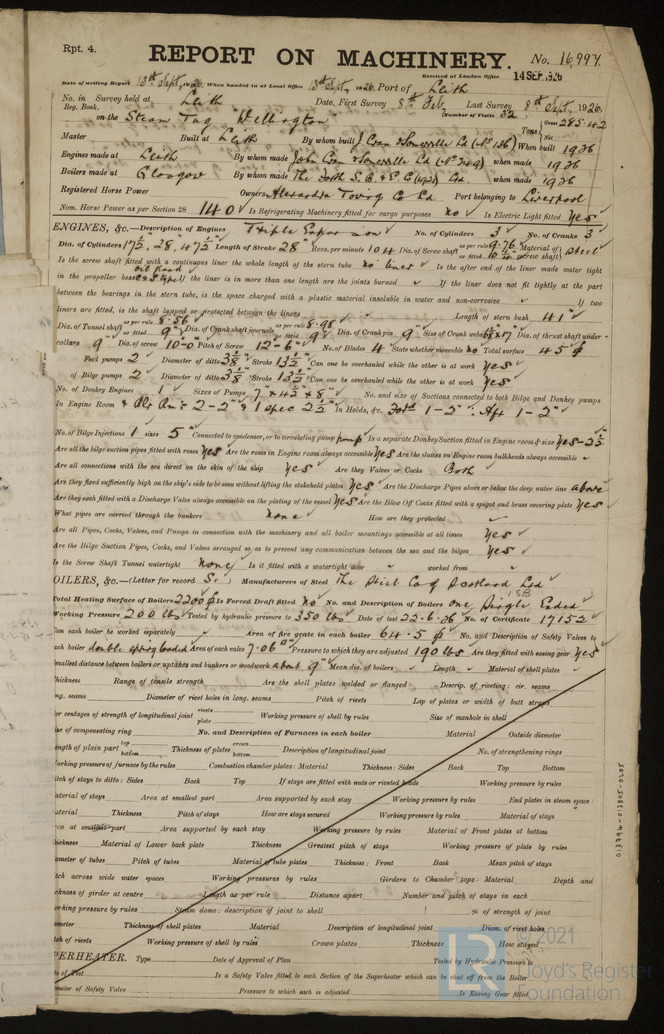 Rpt. 4.
REPORT ON MACHINERY. No. 16,997
Received at London Office 14 SEP. 1926
Date of writing Report 13th Sept, 1926. When handed in at Local Office 13th Sept, 1926. Port of Leith
No. in Survey held at Leith Date, First Survey 8th Feb. Last Survey 8th Sept, 1926.
Reg. Book. (Number of Visits 52)
on the Steam Tug "Wellington" Tons Gross 285.42 Net
Master Built at Leith By whom built J Cran & Somerville Ld (No 136) When built 1926
Engines made at Leith By whom made John Cran & Somerville Ld (No 249) when made 1926
Boilers made at Glasgow By whom made The North S. B. & E. C (1921) Ltd. when made 1926
Registered Horse Power Owners Alexandra Towing Co Ld Port belonging to Liverpool
Nom. Horse Power as per Section 28 140 Is Refrigerating Machinery fitted for cargo purposes no Is Electric Light fitted Yes
ENGINES, &c.—Description of Engines Triple Expansion No. of Cylinders 3 No. of Cranks 3
Dia. of Cylinders 17½, 28, 47½ Length of Stroke 28" Revs. per minute 104 Dia. of Screw shaft as per rule 9.76 as fitted 10¼ Material of screw shaft steel
Is the screw shaft fitted with a continuous liner the whole length of the stern tube no liner Is the after end of the liner made water tight
in the propeller boss oil gland If the liner is in more than one length are the joints burned If the liner does not fit tightly at the part
between the bearings in the stern tube, is the space charged with a plastic material insoluble in water and non-corrosive If two
liners are fitted, is the shaft lapped or protected between the liners Length of stern bush 41"
Dia. of Tunnel shaft as per rule 8.56 as fitted 9" Dia. of Crank shaft journals as per rule 8.98 as fitted 9" Dia. of Crank pin 9" Size of Crank webs Dia. of thrust shaft under
collars 9" Dia. of screw 10-0" Pitch of Screw 12-6" No. of Blades 4 State whether moveable no Total surface 45 ϕ
Feed pumps 2 Diameter of ditto 3⅜" Stroke 13½" Can one be overhauled while the other is at work Yes
of Bilge pumps 2 Diameter of ditto 3⅜" Stroke 13½" Can one be overhauled while the other is at work Yes
No. of Donkey Engines 1 Sizes of Pumps 7" x 4½" x 8" No. and size of Suctions connected to both Bilge and Donkey pumps
In Engine Room & Blr Rm 2-2" & 1 spec 2½" In Holds, &c. Ford 1-2" : Aft 1-2"
No. of Bilge Injections 1 sizes 5" Connected to condenser, or to circulating pump pump Is a separate Donkey Suction fitted in Engine room & size Yes-2½"
Are all the bilge suction pipes fitted with roses Yes Are the roses in Engine room always accessible Yes Are the sluices on Engine room bulkheads always accessible
Are all connections with the sea direct on the skin of the ship Yes Are they Valves or Cocks Both
Are they fixed sufficiently high on the ship's side to be seen without lifting the stokehold plates Yes Are the Discharge Pipes above or below the deep water line above
Are they each fitted with a Discharge Valve always accessible on the plating of the vessel Yes Are the Blow Off Cocks fitted with a spigot and brass covering plate Yes
What pipes are carried through the bunkers none How are they protected
Are all Pipes, Cocks, Valves, and Pumps in connection with the machinery and all boiler mountings accessible at all times Yes
Are the Bilge Suction Pipes, Cocks, and Valves arranged so as to prevent any communication between the sea and the bilges Yes
Is the Screw Shaft Tunnel watertight None Is it fitted with a watertight door worked from
OILERS, &c.—(Letter for record S.) Manufacturers of Steel The Steel Co of Scotland Ltd
1SB
Total Heating Surface of Boilers 2200 ϕ Is Forced Draft fitted no No. and Description of Boilers one Single Ended
Working Pressure 200 lbs Tested by hydraulic pressure to 350 lbs Date of test 22.6.26 No. of Certificate 17152
Can each boiler be worked separately Area of fire grate in each boiler 64.5 ϕ No. and Description of Safety Valves to
each boiler double spring loaded Area of each valve 7.06 Pressure to which they are adjusted 190 lbs Are they fitted with easing gear Yes
Smallest distance between boilers or uptakes and bunkers or woodwork about 9" Mean dia. of boilers Length Material of shell plates
Thickness Range of tensile strength Are the shell plates welded or flanged Descrip. of riveting: cir. seams
ong. seams Diameter of rivet holes in long. seams Pitch of rivets Lap of plates or width of butt straps
er centages of strength of longitudinal joint rivets plate Working pressure of shell by rules Size of manhole in shell
ize of compensating ring No. and Description of Furnaces in each boiler Material Outside diameter
ength of plain part top bottom Thickness of plates crown bottom Description of longitudinal joint No. of strengthening rings
orking pressure of furnace by the rules Combustion chamber plates: Material Thickness: Sides Back Top Bottom
itch of stays to ditto: Sides Back Top If stays are fitted with nuts or riveted heads Working pressure by rules
aterial of stays Area at smallest part Area supported by each stay Working pressure by rules End plates in steam space:
aterial Thickness Pitch of stays How are stays secured Working pressure by rules Material of stays
rea at smallest part Area supported by each stay Working pressure by rules Material of Front plates at bottom
hickness Material of Lower back plate Thickness Greatest pitch of stays Working pressure of plate by rules
iameter of tubes Pitch of tubes Material of tube plates Thickness: Front Back Mean pitch of stays
itch across wide water spaces Working pressures by rules Girders to Chamber tops: Material Depth and
ickness of girder at centre Length as per rule Distance apart Number and pitch of stays in each
orking pressure by rules Steam dome: description of joint to shell % of strength of joint
ameter Thickness of shell plates Material Description of longitudinal joint Diam. of rivet holes
itch of rivets Working pressure of shell by rules Crown plates Thickness How stayed
PERHEATER. Type Date of Approval of Plan Tested by Hydraulic Pressure to
te of Test Is a Safety Valve fitted to each Section of the Superheater which can be shut off from the Boiler
ameter of Safety Valve Pressure to which each is adjusted Is Easing Gear fitted
013794-013805-0205
© 2021
Lloyd's Register
Foundation
LR